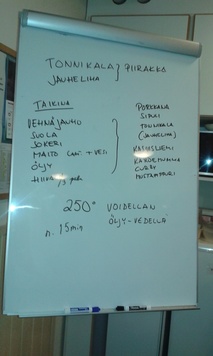 TONNIKALA } PIIRAKKA
JAUHELIHA
TAIKINA
VEHNÄJAUHO
SUOLA
SOKERI
MAITO + VESI
ÖLJY
HIIVA
PORKKANA
SIPULI
TONNIKALA
(JAUHELIHA)
KAURAKERMAA
CURRY
MUSTAPIPPURI
250° VOIDELLAN
ÖLJY-VEDELLÄ
n. 15 min